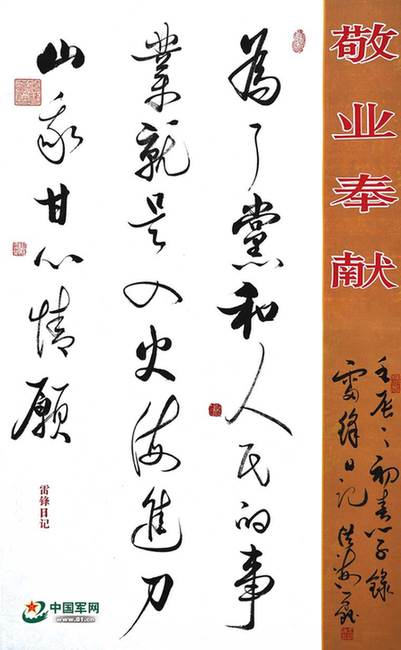 敬业奉献
壬辰初春
雷鋒日记
為了黨和人民的事
業就是入火海進刀
山我甘心情願
雷鋒日记
中国军网
www.81.cn